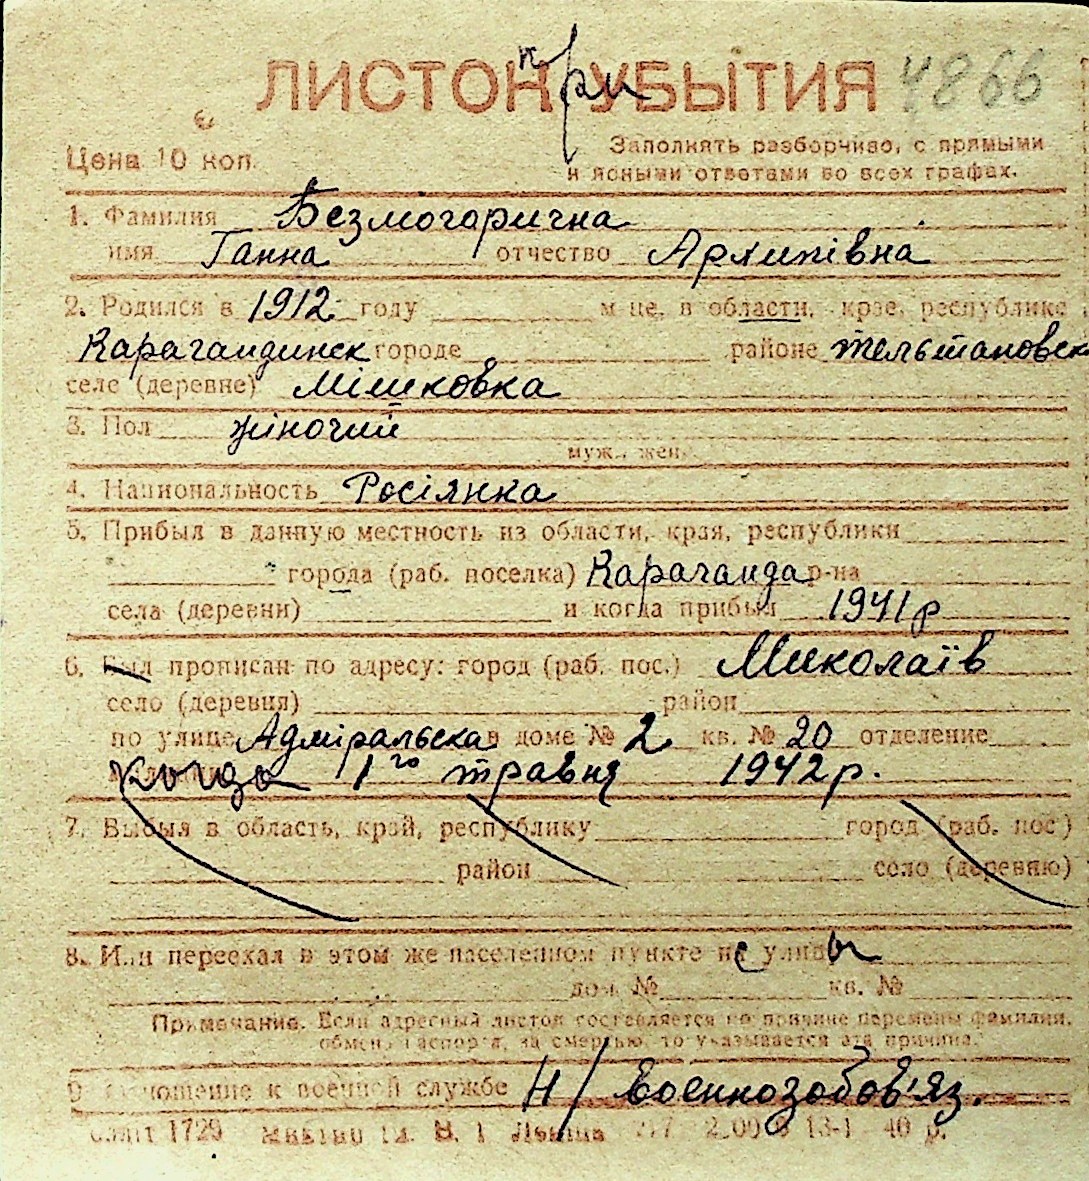 ЛИСТОК при УБЫТИЯ 4866
Цена 10 коп.
Заполнять разборчиво, с прямыми
и ясными ответами во всех графах.
1. Фамилия Безмогорична
имя Ганна отчество Архипівна
2. Родился в 1912 году м-це, в области, крае, республике
Карагандинск городе районе тельмановск
селе (деревне) Мішковка
3. Пол жіночий
муж., жен.
4. Национальность Росіянка
5. Прибыл в данную местность из области, края, республики
города (раб. поселка) Караганда р-на
села (деревни) и когда прибыл 1941 р
6. Был прописан по адресу: город (раб. пос.) Миколаїв
село (деревня) район
по улице Адміральська в доме № 2 кв. № 20 отделение
Когда 1го травня 1942 р.
7. Выбыл в область, край, республику город (раб. пос)
район село (деревню)
8. Или переехал в этом же населенном пункте из улицы
дом № кв. №
Примечание. Если адресный листок составляется по причине перемены фамилии,
обмена паспорта, за смертью, то указывается эта причина.
9. Отношение к военной службе Н/Военнозобов'яз.
1729 40 р.